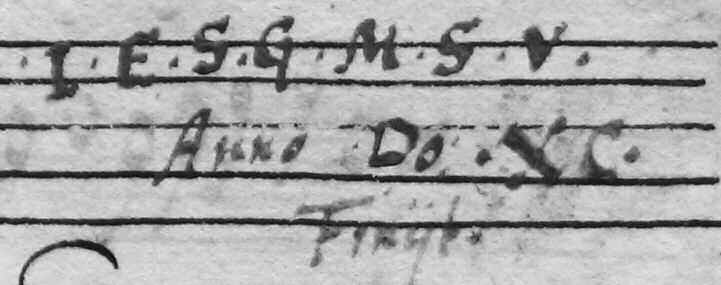 .I.E.S.G.M.S.V.
Anno Do.XC.
Finijt.